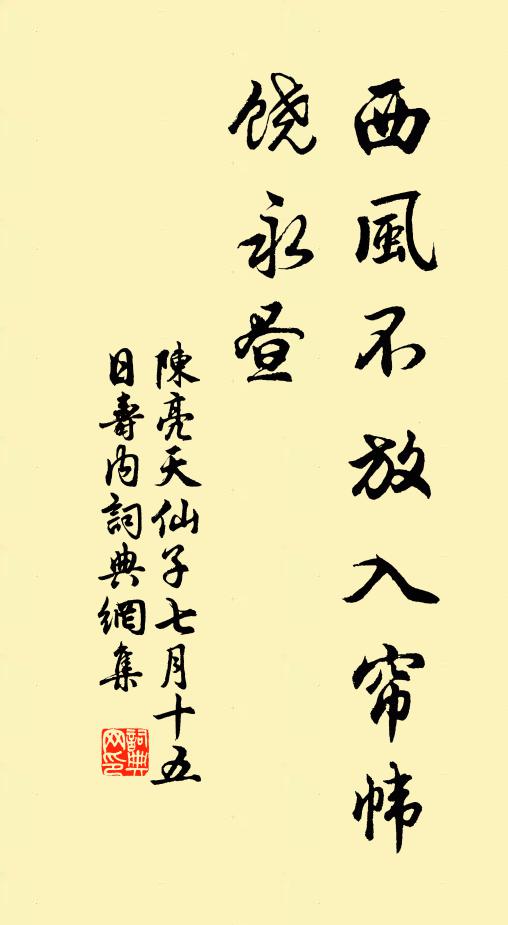 西風不放入帘幃
饶永昼
陳亮天仙子七月十五
日壽内詞典網集
詞典網印